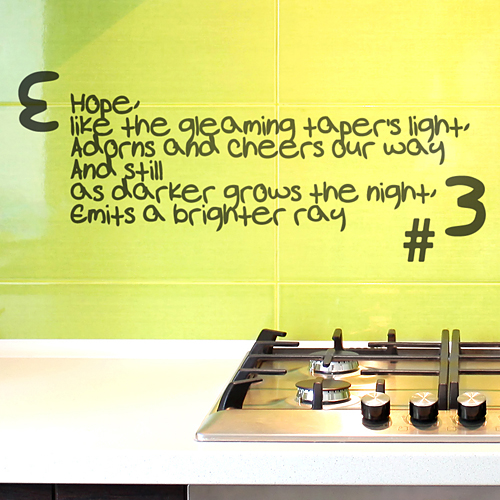 Ɛ
Hope,
like the gleaming taper's light,
Adorns and cheers our way
And still
as darker grows the night,
Emits a brighter ray
#3